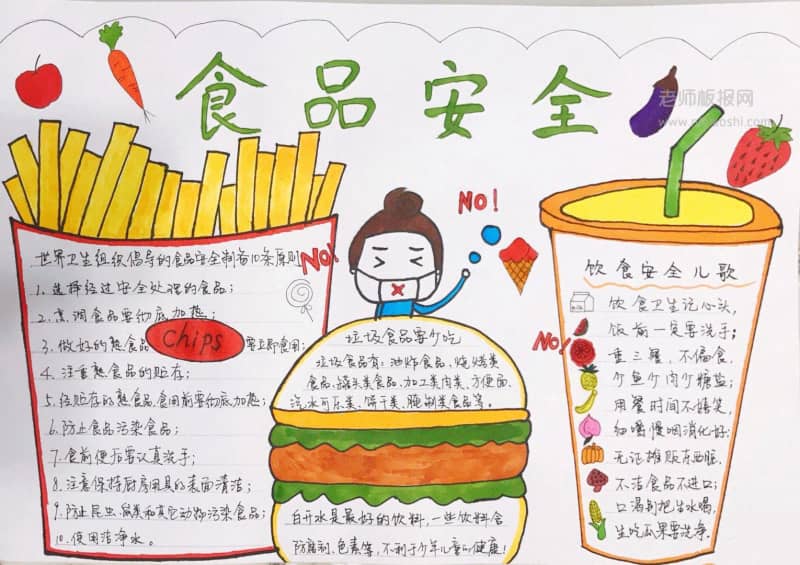 食品安全
老师板报网
世界卫生组织倡导的食品安全制备10条原则
NO!
1.选择经过安全处理的食品;
2.烹调食品要彻底加热;
3.做好的熟食品 Chips 要立即食用;
4.注重熟食品的贮存;
5.经贮存的熟食品食用前要彻底加热;
6.防止食品污染食品;
7.食前便后要认真洗手;
8.注意保持厨房用具的表面清洁;
9.防止昆虫、鼠类和其它动物污染食品;
10.使用洁净水。
NO!
垃圾食品要少吃
垃圾食品有:油炸食品,烧烤类
食品,罐头类食品,加工类肉类,方便面,
汽水可乐类、饼干类、腌制类食品等。
白开水是最好的饮料,一些饮料含
防腐剂、色素等,不利于少年儿童的健康!
饮食安全儿歌
NO!
饮食卫生记心头,
饭前一定要洗手;
重三餐、不偏食,
少鱼少肉少糖盐;
用餐时间不嬉笑,
细嚼慢咽消化好;
无证摊贩东西脏,
不洁食品不进口;
口渴别把生水喝,
生吃瓜果要洗净.